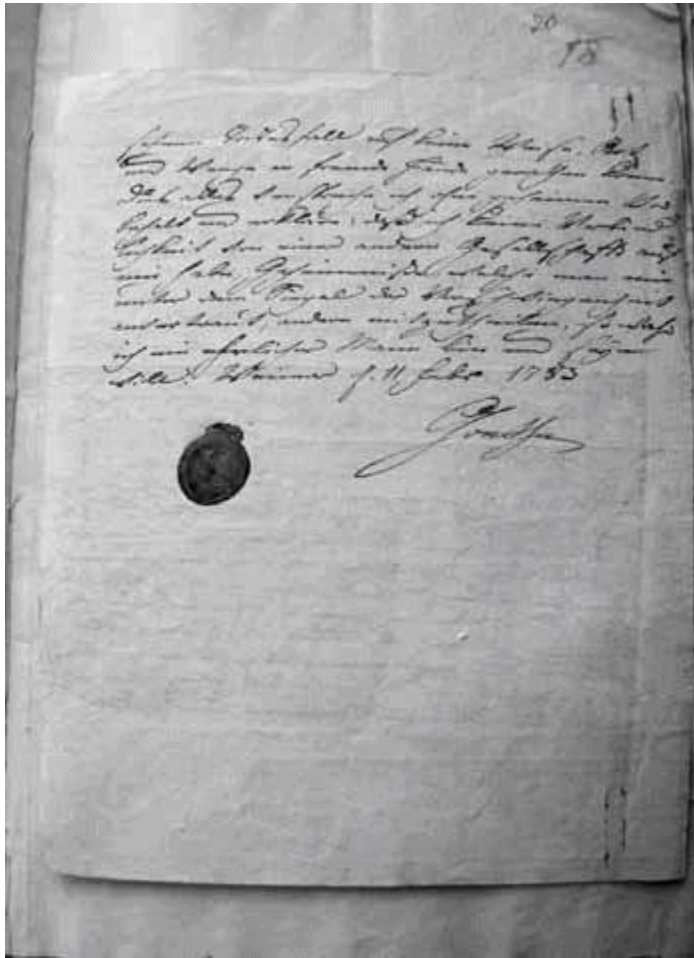 20
18
seinem Todesfall auf keine Weise, Art
und Wege in fremde Hände gerathen können
Dies alles verspreche ich ohne geheimen Vor
behalt und erkläre, daß ich keine Verbind
lichkeit von einer andern Gesellschaft auf
mir habe Geheimnisse welche man mir
unter dem Siegel der Verschwiegenheit
anvertraut, andern mitzutheilen. So wahr
ich ein ehrlicher Mann bin und seyn
will. Weimar d. 11 Febr 1783
Goethe